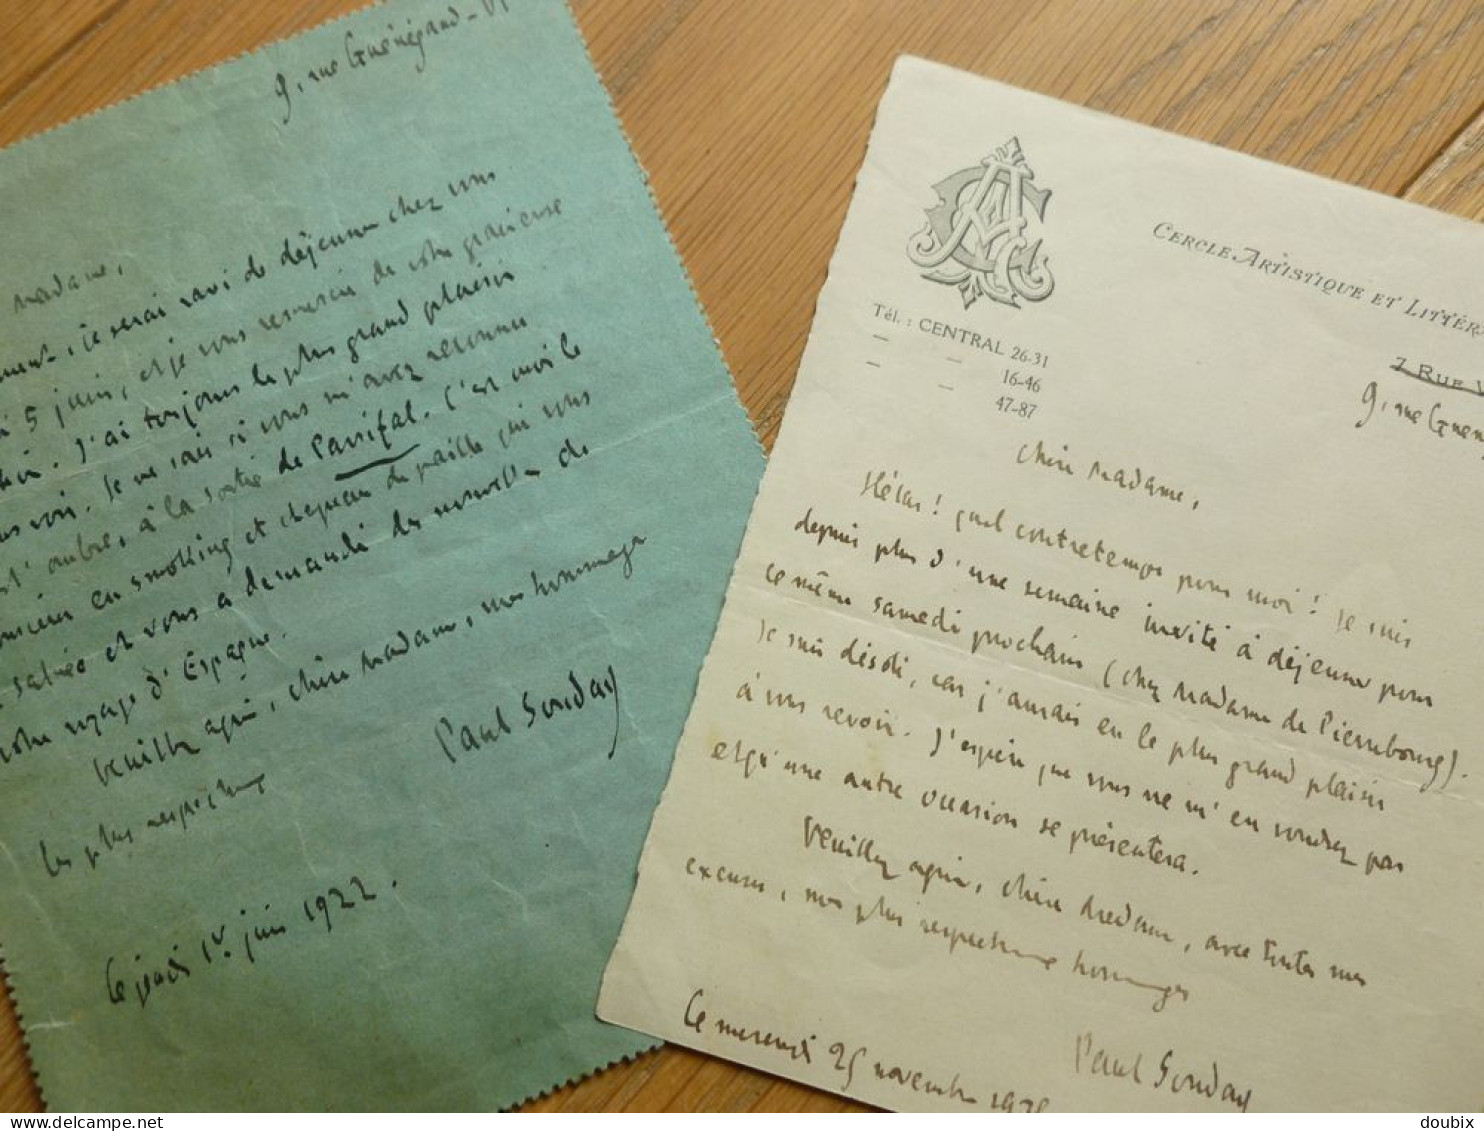 9, rue Guénégaud - VI
Madame,
je serai ravi de déjeuner chez vous
5 juin, et je vous remercie de votre gracieuse
J'ai toujours le plus grand plaisir
voir. Je ne sais si vous m'avez reconnu
l'autre, à la sortie de Parsifal. C'est moi le
monsieur en smoking et chapeau de paille qui vous
saluée et vous a demandé des nouvelles de
votre voyage d'Espagne.
Veuillez agréer, chère Madame, mes hommages
les plus respectueux
Paul Souday
Le jeudi 1er juin 1922.
CERCLE ARTISTIQUE ET LITTÉR
Tél. : CENTRAL 26-31
— — 16-46
— — 47-87
7 RUE V
9, rue Guén
Chère Madame,
Hélas ! quel contretemps pour moi ! Je suis
depuis plus d'une semaine invité à déjeuner pour
ce même samedi prochain (chez Madame de Pierrebourg).
Je suis désolé, car j'aurais eu le plus grand plaisir
à vous revoir. J'espère que vous ne m'en voudrez pas
et qu'une autre occasion se présentera.
Veuillez agréer, chère Madame, avec toutes mes
excuses, mes plus respectueux hommages
Paul Souday
Le mercredi 25 novembre 192
doubix